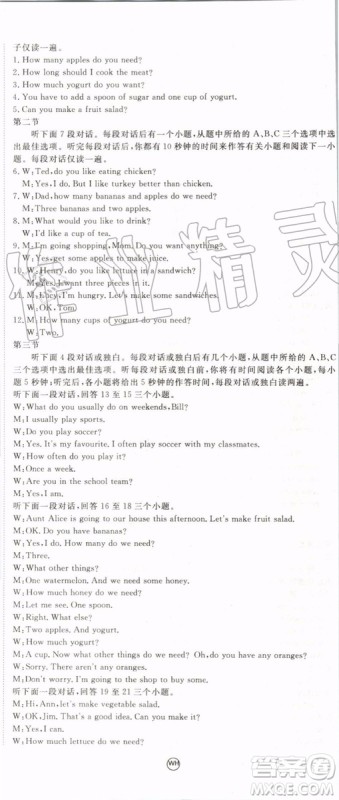 子仅读一遍。
1. How many apples do you need?
2. How long should I cook the meat?
3. How much yogurt do you want?
4. You have to add a spoon of sugar and one cup of yogurt.
5. Can you make a fruit salad?
第二节
听下面7段对话。每段对话后有一个小题，从题中所给的A、B、C三个选项中选
出最佳选项。听完每段对话后，你都有10秒钟的时间来作答有关小题和阅读下一小
题。每段对话仅读一遍。
6. W: Ted, do you like eating chicken?
M: Yes, I do. But I like turkey better than chicken.
7. W: Dad, how many bananas and apples do you need?
M: Three bananas and two apples.
8. M: What would you like to drink?
W: I'd like a cup of tea.
9. M: I'm going shopping, Mom. Do you want anything?
W: Yes, get some apples to make juice.
10. W: Henry, do you like lettuce in a sandwich?
M: Yes. I want three pieces in it.
11. M: Lucy, I'm hungry. Let's make sandwiches.
W: OK, Tom.
12. M: How many cups of yogurt do you need?
W: Two.
第三节
听下面4段对话或独白。每段对话或独白后有几个小题，从题中所给的A、B、C
三个选项中选出最佳选项。听每段对话或独白前，你将有时间阅读各个小题，每小
题5秒钟；听完后，各小题将给出5秒钟的作答时间，每段对话或独白读两遍。
听下面一段对话，回答13至15三个小题。
W: What do you usually do on weekends, Bill?
M: I usually play sports.
W: Do you play soccer?
M: Yes. It's my favourite. I often play soccer with my classmates.
W: How often do you play it?
M: Once a week.
W: Are you in the school team?
M: Yes, I am.
听下面一段对话，回答16至18三个小题。
W: Aunt Alice is going to our house this afternoon. Let's make fruit salad.
M: OK. Do you have bananas?
W: Yes, I do. How many do we need?
M: Three.
W: What other things?
M: One watermelon. And we need some honey.
W: How much honey do we need?
M: Let me see. One spoon.
W: Right. What else?
M: Two apples. And yogurt.
W: How much yogurt do we need?
M: A cup. Now what other things do we need? Oh, do you have any oranges?
W: Sorry. There aren't any oranges.
M: Don't worry. I'm going to the shop to buy some.
听下面一段对话，回答19至21三个小题。
M: Hi, Ann, let's make vegetable salad.
W: OK, Jim. Do you have cabbages?
M: Yes, and I have some tomatoes, too.
W: How much lettuce do we need?
WH